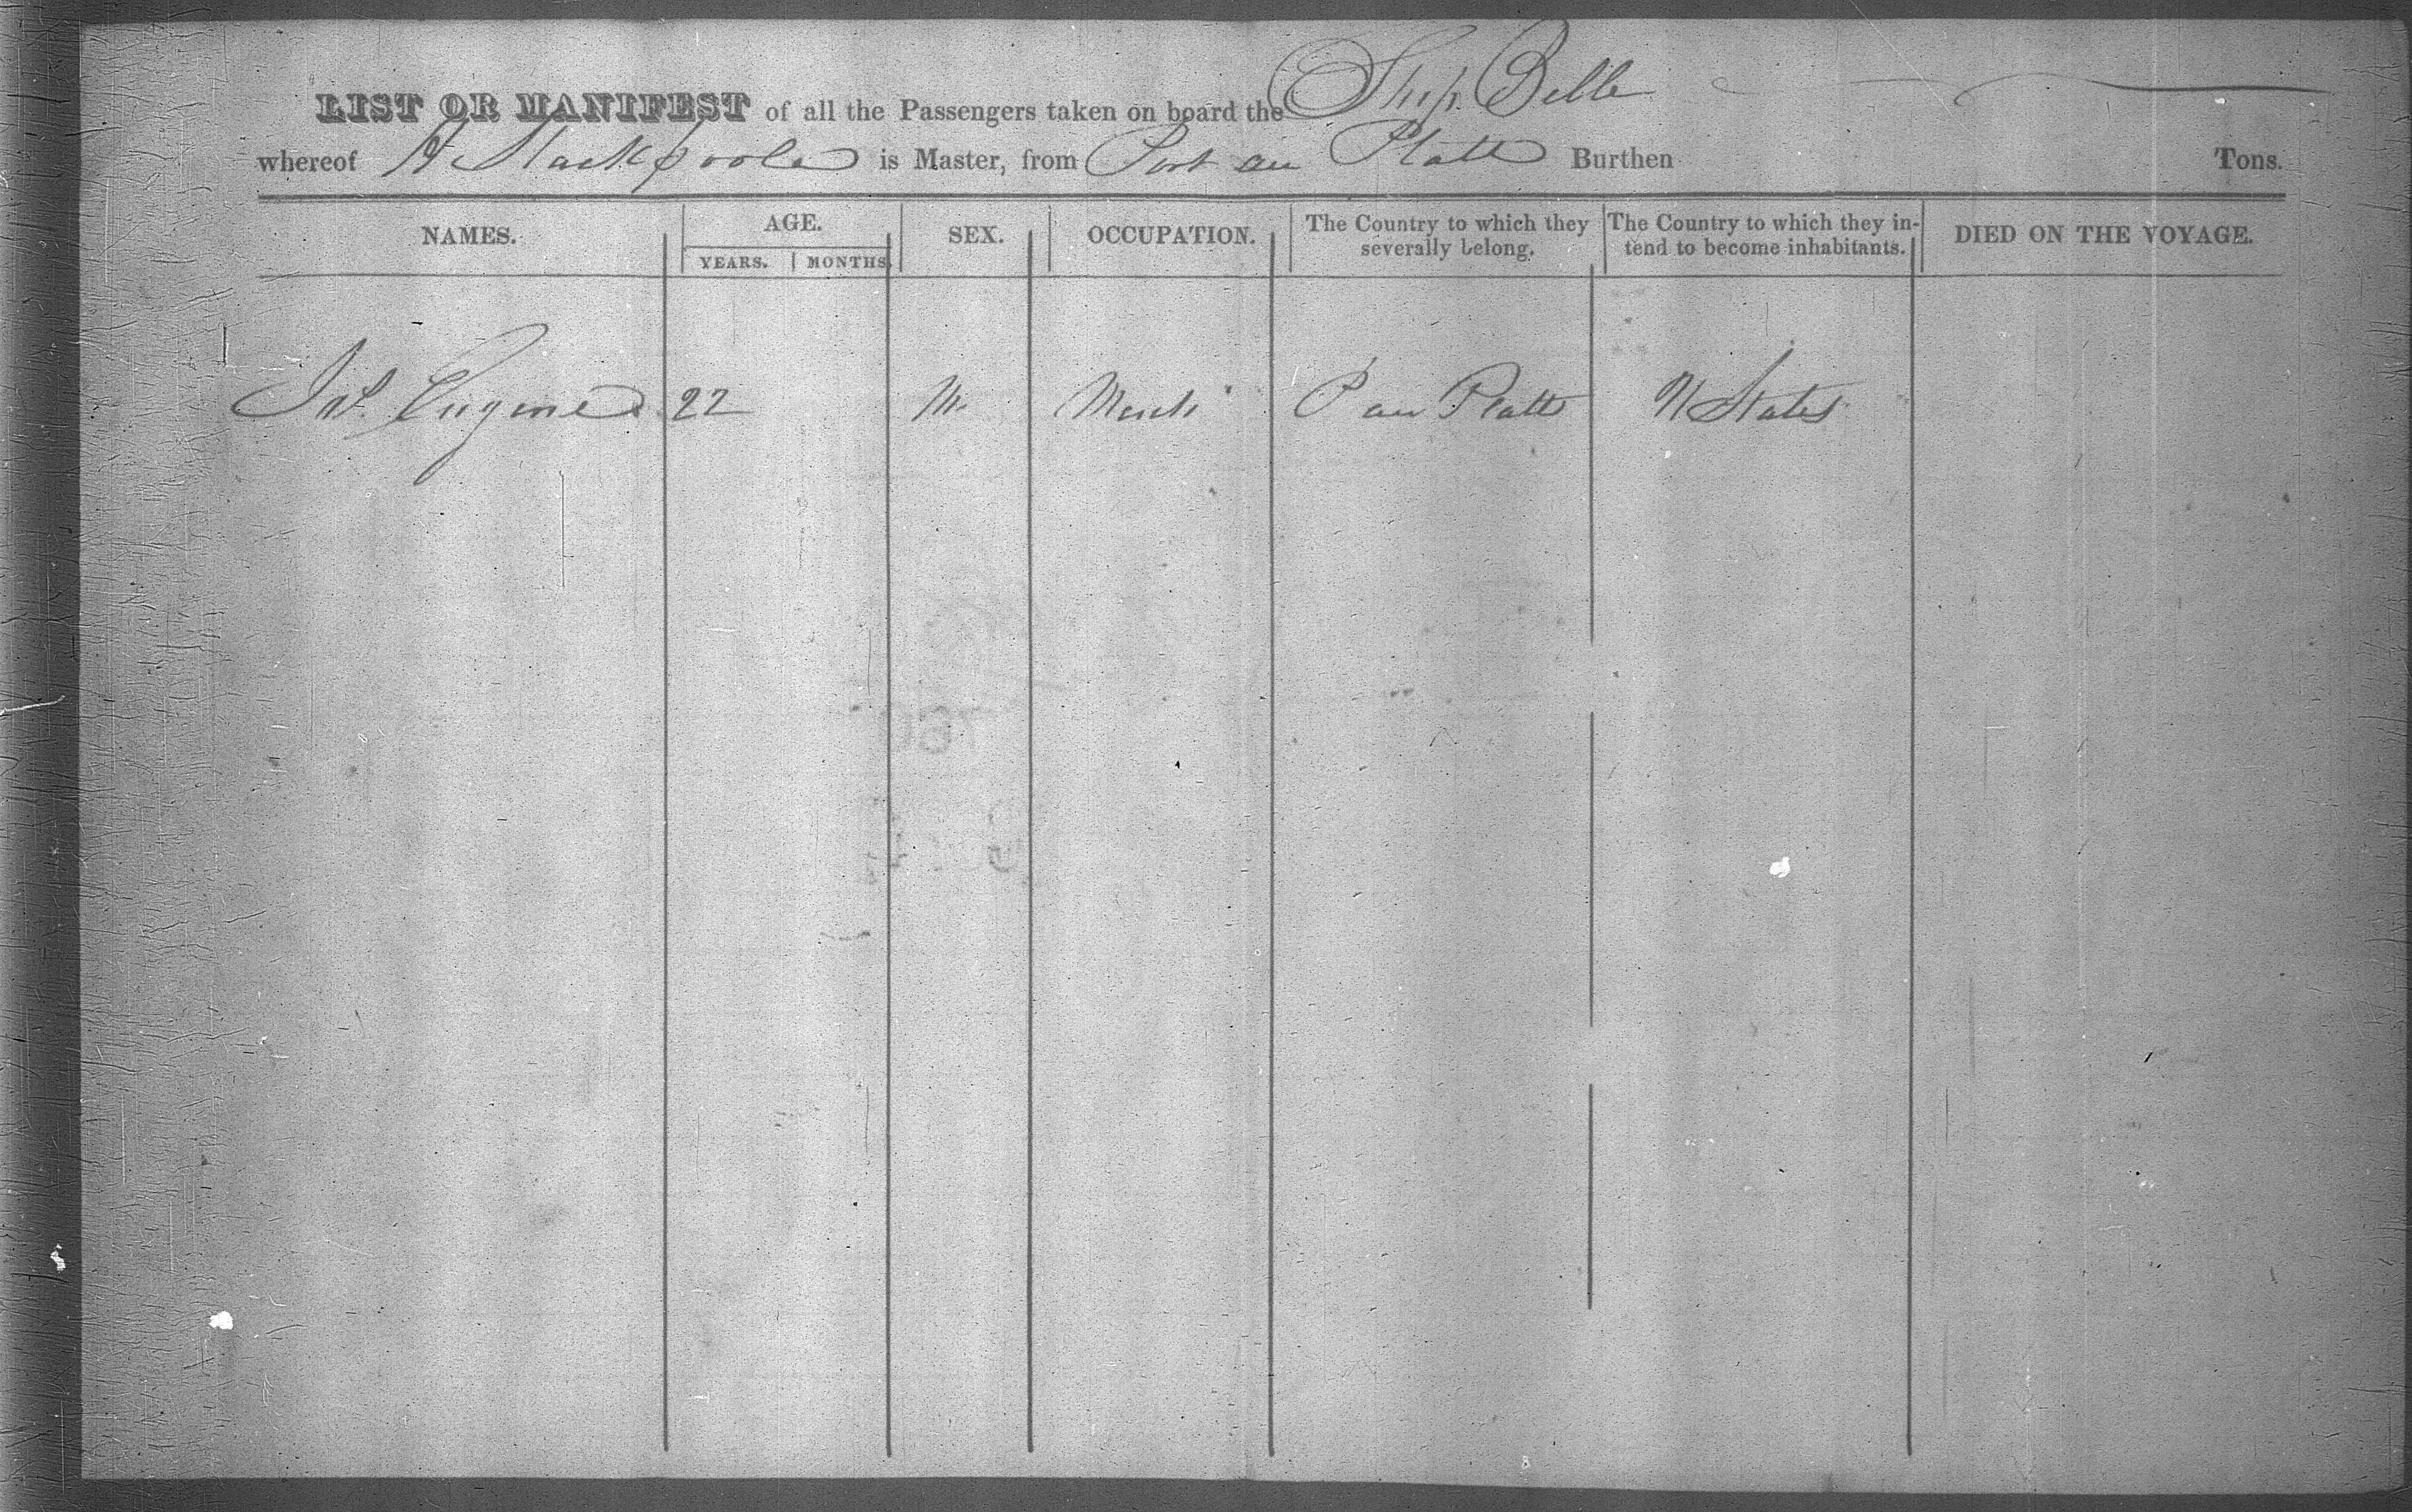 LIST OR MANIFEST of all the Passengers taken on board the Ship Belle
whereof H Stackpole is Master, from Port au Platt Burthen Tons.
NAMES. AGE. SEX. OCCUPATION. The Country to which they severally belong. The Country to which they intend to become inhabitants. DIED ON THE VOYAGE.
YEARS. MONTHS.
Eugene 22 M. Merch P au Platt U States